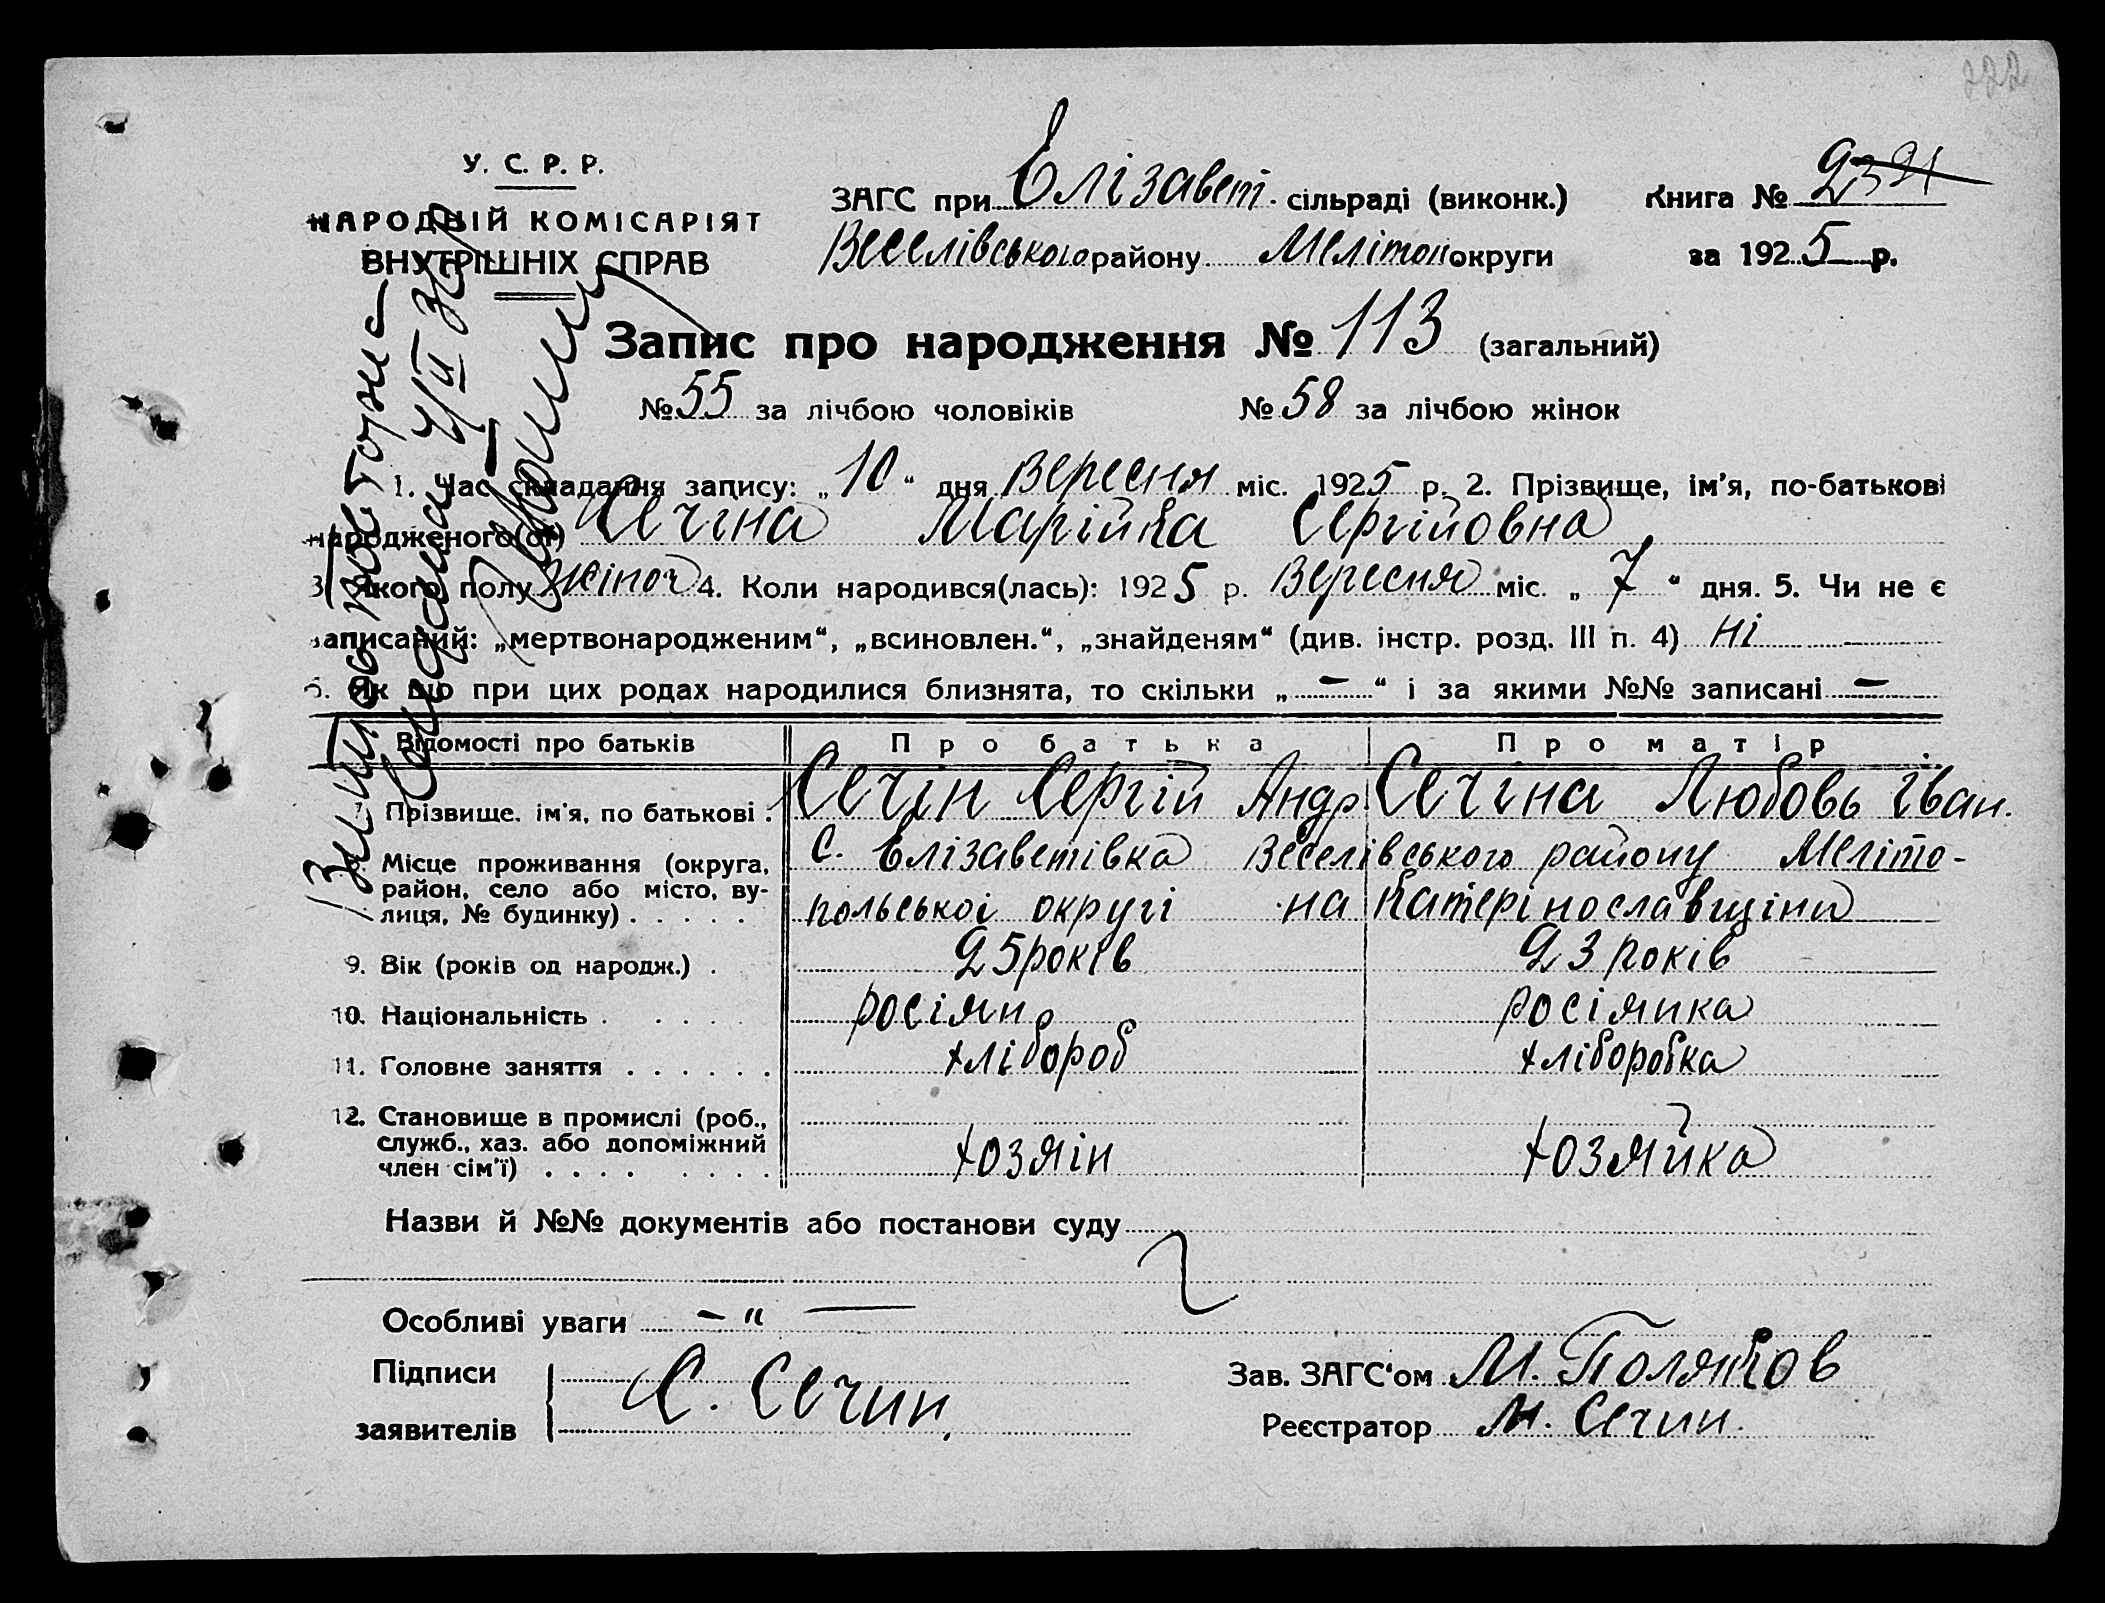 222
У. С. Р. Р.
НАРОДНІЙ КОМІСАРІЯТ
ВНУТРІШНІХ СПРАВ
ЗАГС при Елізавет. сільраді (виконк.) Книга № 2
Веселівського району Мелітоп округи за 1925 р.
Запис про народження № 113 (загальний)
№ 55 за лічбою чоловіків № 58 за лічбою жінок
1. Час складання запису: „10“ дня Вересня міс. 1925 р. 2. Прізвище, ім'я, по-батькові
народженого(ої) Сечіна Марійка Сергійовна
3. Якого полу жіноч 4. Коли народився(лась): 1925 р. Вересня міс. „7“ дня. 5. Чи не є
записаний: „мертвонародженим“, „всиновлен.“, „знайденям“ (див. інстр. розд. III п. 4) ні
6. Як що при цих родах народилися близнята, то скільки „ — “ і за якими №№ записані —
Відомості про батьків Про батька Про матір
7. Прізвище. ім'я, по батькові . Сечін Сергій Андр Сечіна Любовь Іван.
8. Місце проживання (округа, район, село або місто, ву-лиця, № будинку) . . . . . с. Елізаветівка Веселівського району Меліто-
польської округі на Катерінославщіни
9. Вік (років од народж.) . 25 років 23 років
10. Національність . . . . . росіян росіянка
11. Головне заняття . . . . . . хлібороб хліборобка
12. Становище в промислі (роб.,
служб., хаз. або допоміжний
член сім'ї) . . . . . . . . хозяін хозяйка
Назви й №№ документів або постанови суду
Особливі уваги — “ —
Підписи
заявителів С. Сечин.
Зав. ЗАГС'ом М. Поляков
Реєстратор М. Сечин.